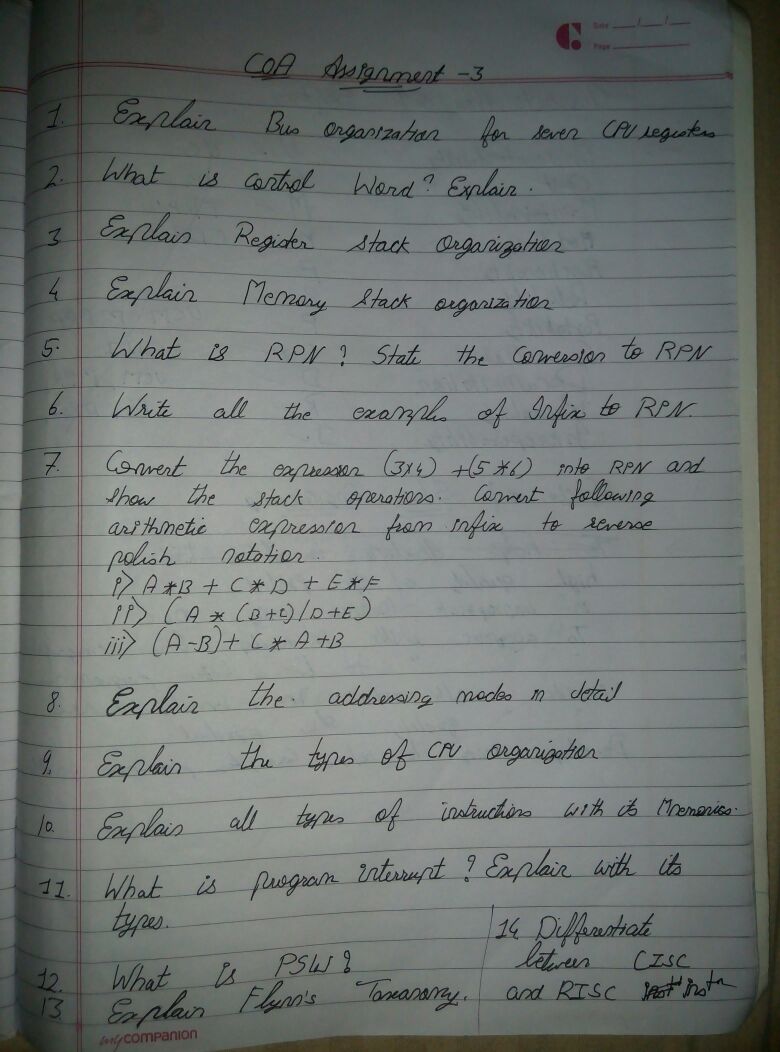 Date
Page
COA Assignment -3
1. Explain Bus organization for seven CPU registers
2. What is control Word? Explain.
3 Explain Register stack organization
4 Explain Memory Stack organization
5. What is RPN? State the conversion to RPN
6. Write all the examples of Infix to RPN.
7. Convert the expression (3*4) +(5 *6) into RPN and
show the stack operations. Convert following
arithmetic expression from infix to reverse
polish notation.
i> A*B + C*D + E*F
ii> (A * (B+C)/D+E)
iii> (A-B)+ C* A+B
8. Explain the addressing modes in detail
9. Explain the types of CPU organization
10. Explain all types of instructions with its Mnemonics.
11. What is program interrupt? Explain with its
types.
12. What is PSW?
13 Explain Flynn's Taxanomy.
14 Differentiate
between CISC
and RISC instn
mycompanion